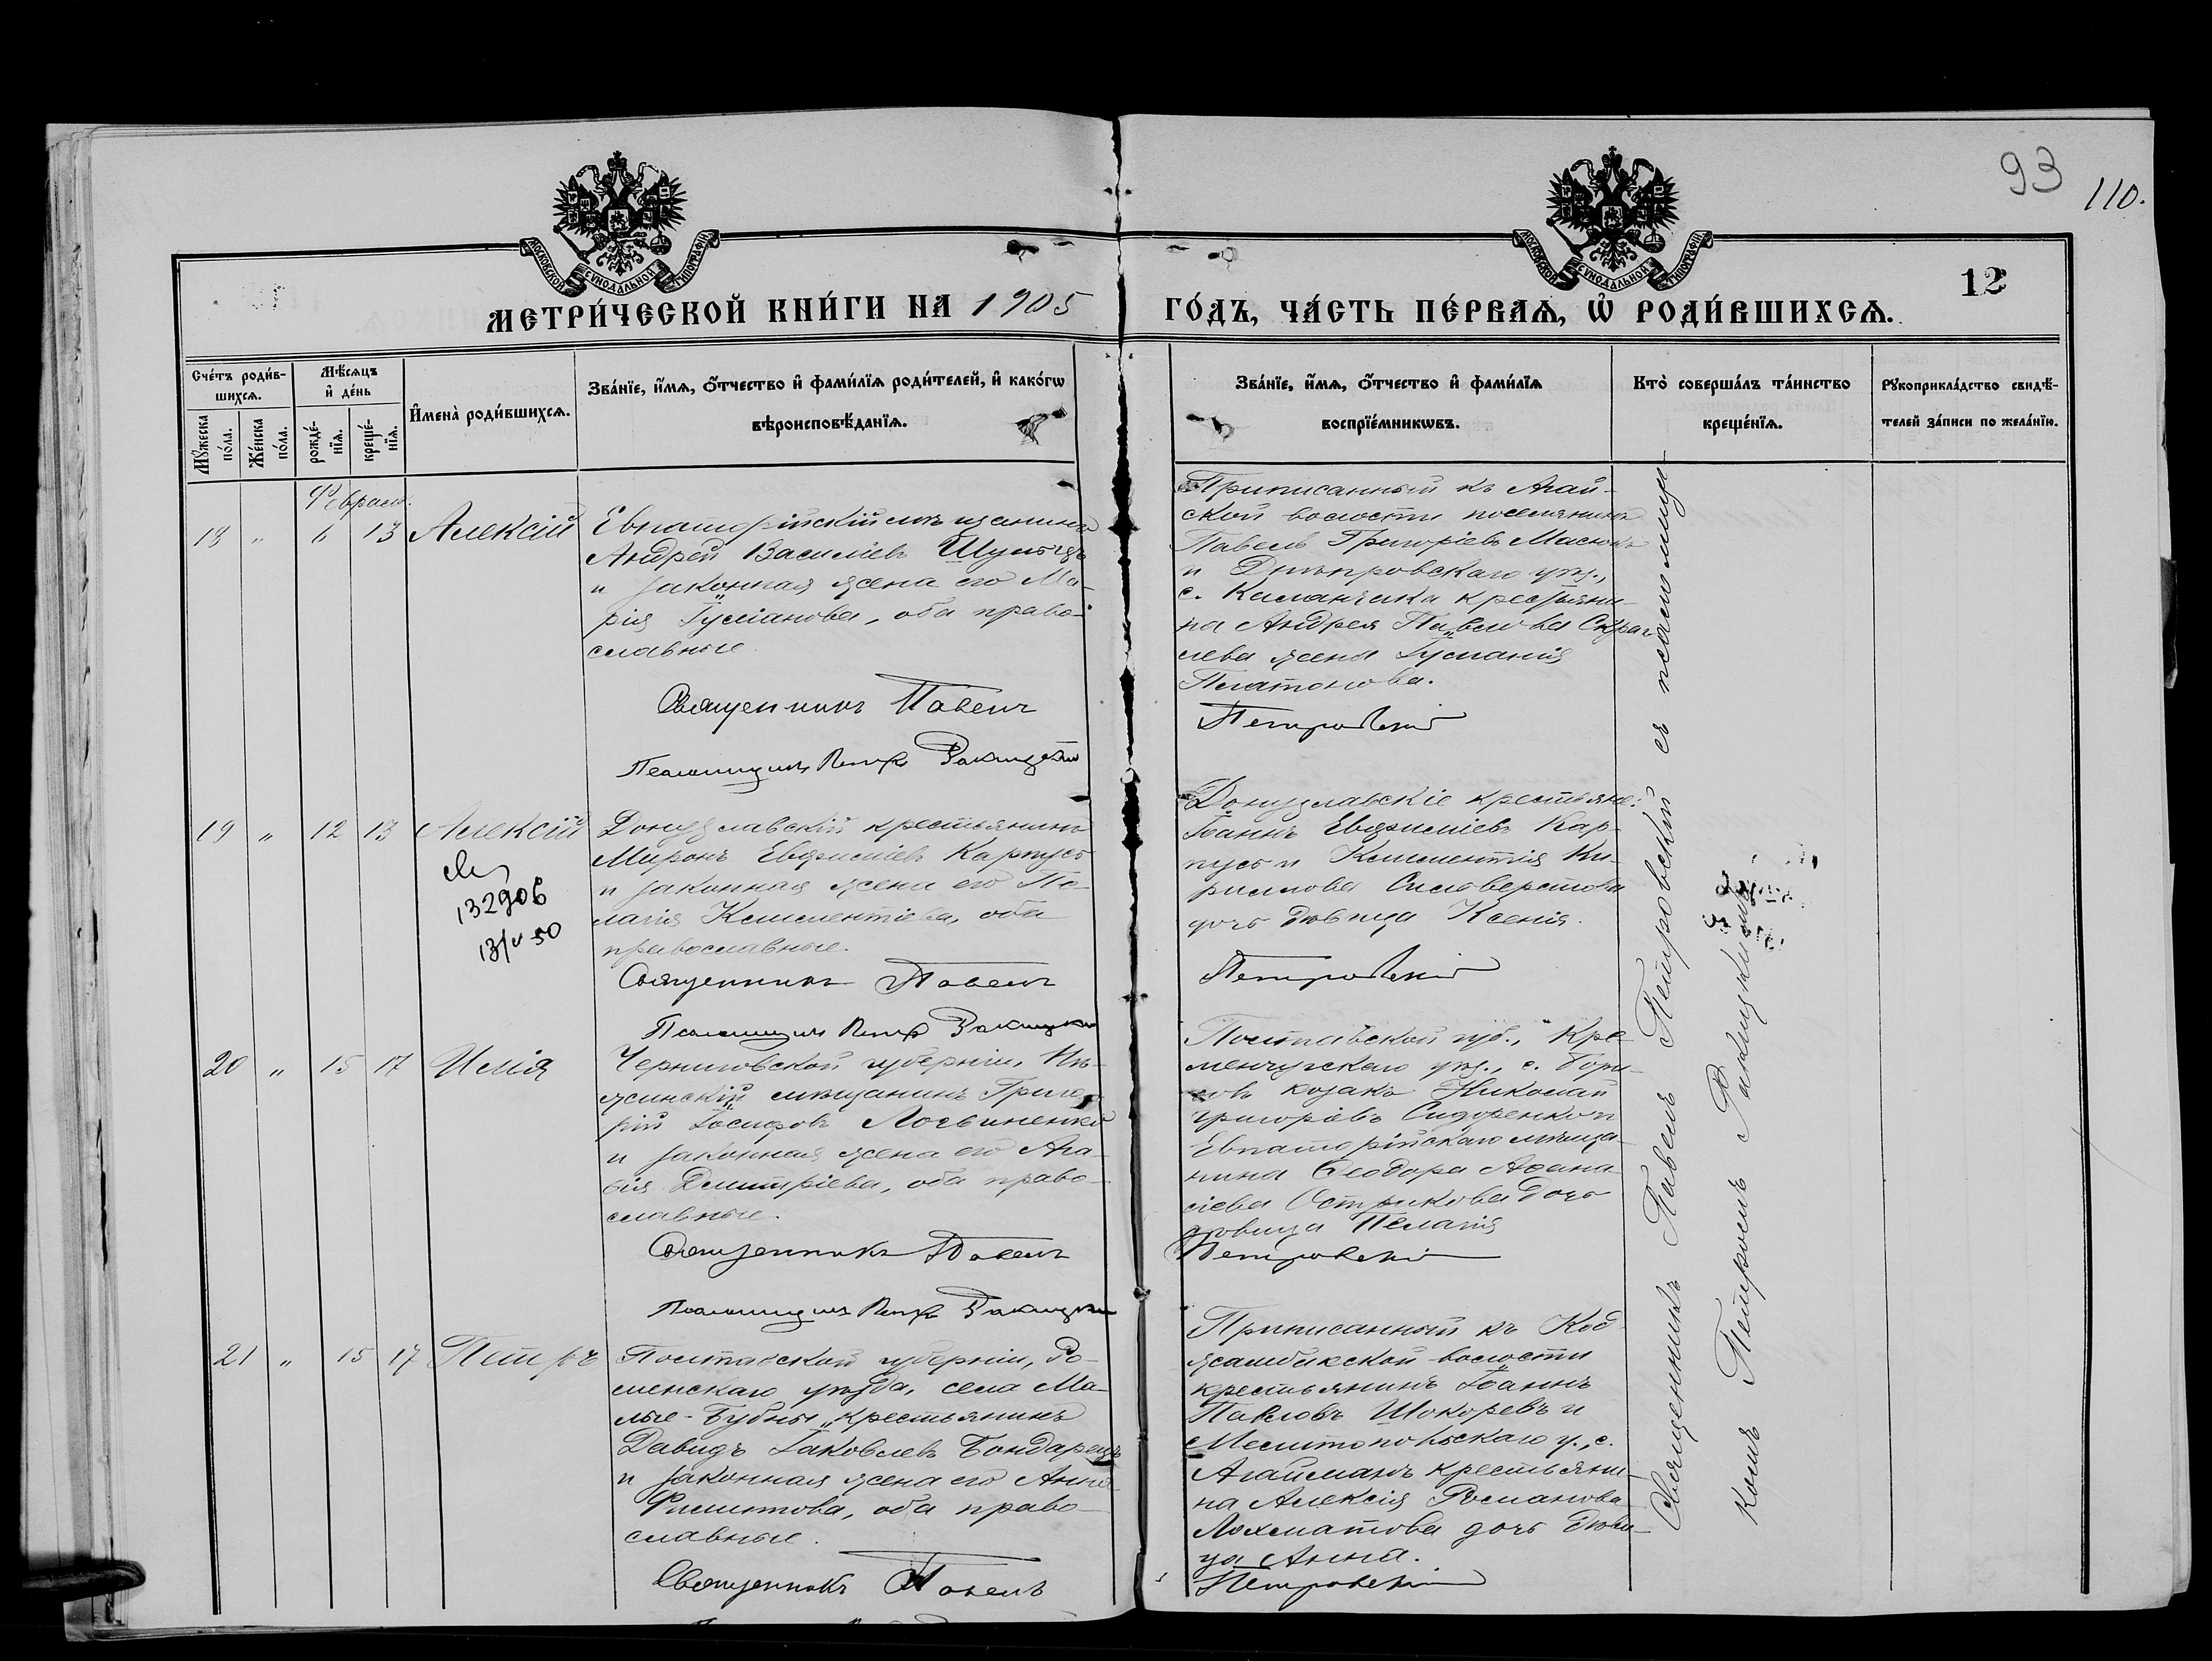 93
110.
МОСКОВСКОЙ СѴНОДАЛЬНОЙ ТИПОГРАФІИ
МОСКОВСКОЙ СѴНОДАЛЬНОЙ ТИПОГРАФІИ
12
МЕТРИ́ЧЕСКОЙ КНИ́ГИ НА 1905 ГО́ДЪ, ЧА́СТЬ ПЕ́РВАѦ, Ѽ РОДИ́ВШИХСѦ.
Сче́тъ роди́в-
шихсѧ.
Мꙋ́жеска
по́ла.
Же́нска
по́ла.
Мѣ́сѧцъ
и҆ де́нь
рожде́-
нїѧ.
креще́-
нїѧ.
И҆мена̀ роди́вшихсѧ.
Зва́нїе, и҆́мѧ, ѻ҆́тчество и҆ фами́лїѧ роди́телей, и҆ како́гѡ
вѣроисповѣ́данїѧ.
Зва́нїе, и҆́мѧ, ѻ҆́тчество и҆ фами́лїѧ
воспрїе́мникѡвъ.
Кто̀ соверша́лъ та́инство
креще́нїѧ.
Рꙋкоприкла́дство свидѣ́-
телей за́писи по жела́нїю.
Февраль.
18 " 6 13 Алексій
Евпаторійскій мѣщанинъ
Андрей Василіевъ
и законная жена его Ма-
рія Іуліанова, оба право-
славные.
Священникъ Павелъ
Псаломщикъ Петръ
Приписанный къ Агай-
ской волости поселянинъ
Павелъ Григоріевъ
и Днѣпровскаго уѣз.,
с. Каланчака крестьяни-
на Андрея Павлова
лева жена Іуліанія
Платонова.
Петровскій
19 " 12 13 Алексій
132906
13/V 50
Донузлавскій крестьянинъ
Миронъ Евфиміевъ Карпусь
и законная жена его Пе-
лагія Климентіева, оба
православные.
Священникъ Павелъ
Псаломщикъ Петръ
Донузлавскіе крестьяне:
Іоаннъ Евфиміевъ Кар-
пусь и Климентія Ки-
риллова Сильверстова
дочь дѣвица Ксенія.
Петровскій
20 " 15 17 Илія
Черниговской губерніи, Нѣ-
жинскій мѣщанинъ Григо-
рій Іосифовъ Логвиненко
и законная жена его Ага-
ѳія Димитріева, оба право-
славные.
Священникъ Павелъ
Псаломщикъ Петръ
Полтавской губ., Кре-
менчугскаго уѣз., с.
козакъ Николай
Григоріевъ Сидоренко и
Евпаторійскаго мѣща-
нина Ѳеодора Аѳана-
сіева Острикова дочь
дѣвица Пелагія
Петровскій
21 " 15 17 Петръ
Полтавской губерніи, Ро-
менскаго уѣзда, села Ма-
лые-Бубны, крестьянинъ
Давидъ Іаковлевъ Бондарецъ
и законная жена его Анна
Филиппова, оба право-
славные.
Священникъ Павелъ
Приписанный къ Код-
жамбакской волости
крестьянинъ Іоаннъ
Павловъ Шокоревъ и
Мелитопольскаго у., с.
Агайманъ крестьяни-
на Алексія Романова
Лохматова дочь дѣви-
ца Анна.
Петровскій
Священникъ Павелъ Петровскій съ псаломщи-
комъ Петромъ